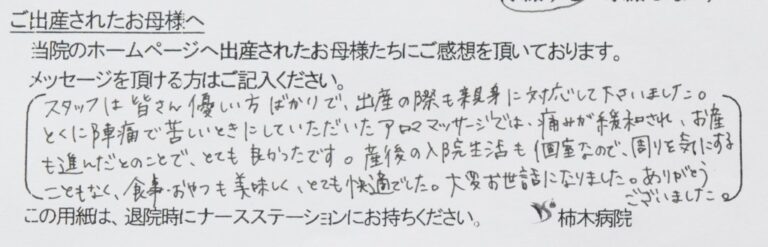 ご出産されたお母様へ
当院のホームページへ出産されたお母様たちにご感想を頂いております。
メッセージを頂ける方はご記入ください。
スタッフは皆さん優しい方ばかりで、出産の際も親身に対応して下さいました。
とくに陣痛で苦しいときにしていただいたアロママッサージでは、痛みが緩和され、お産
も進んだとのことで、とても良かったです。産後の入院生活も個室なので、周りを気にする
こともなく、食事・おやつも美味しく、とても快適でした。大変お世話になりました。ありがとう
ございました。
この用紙は、退院時にナースステーションにお持ちください。 柿木病院